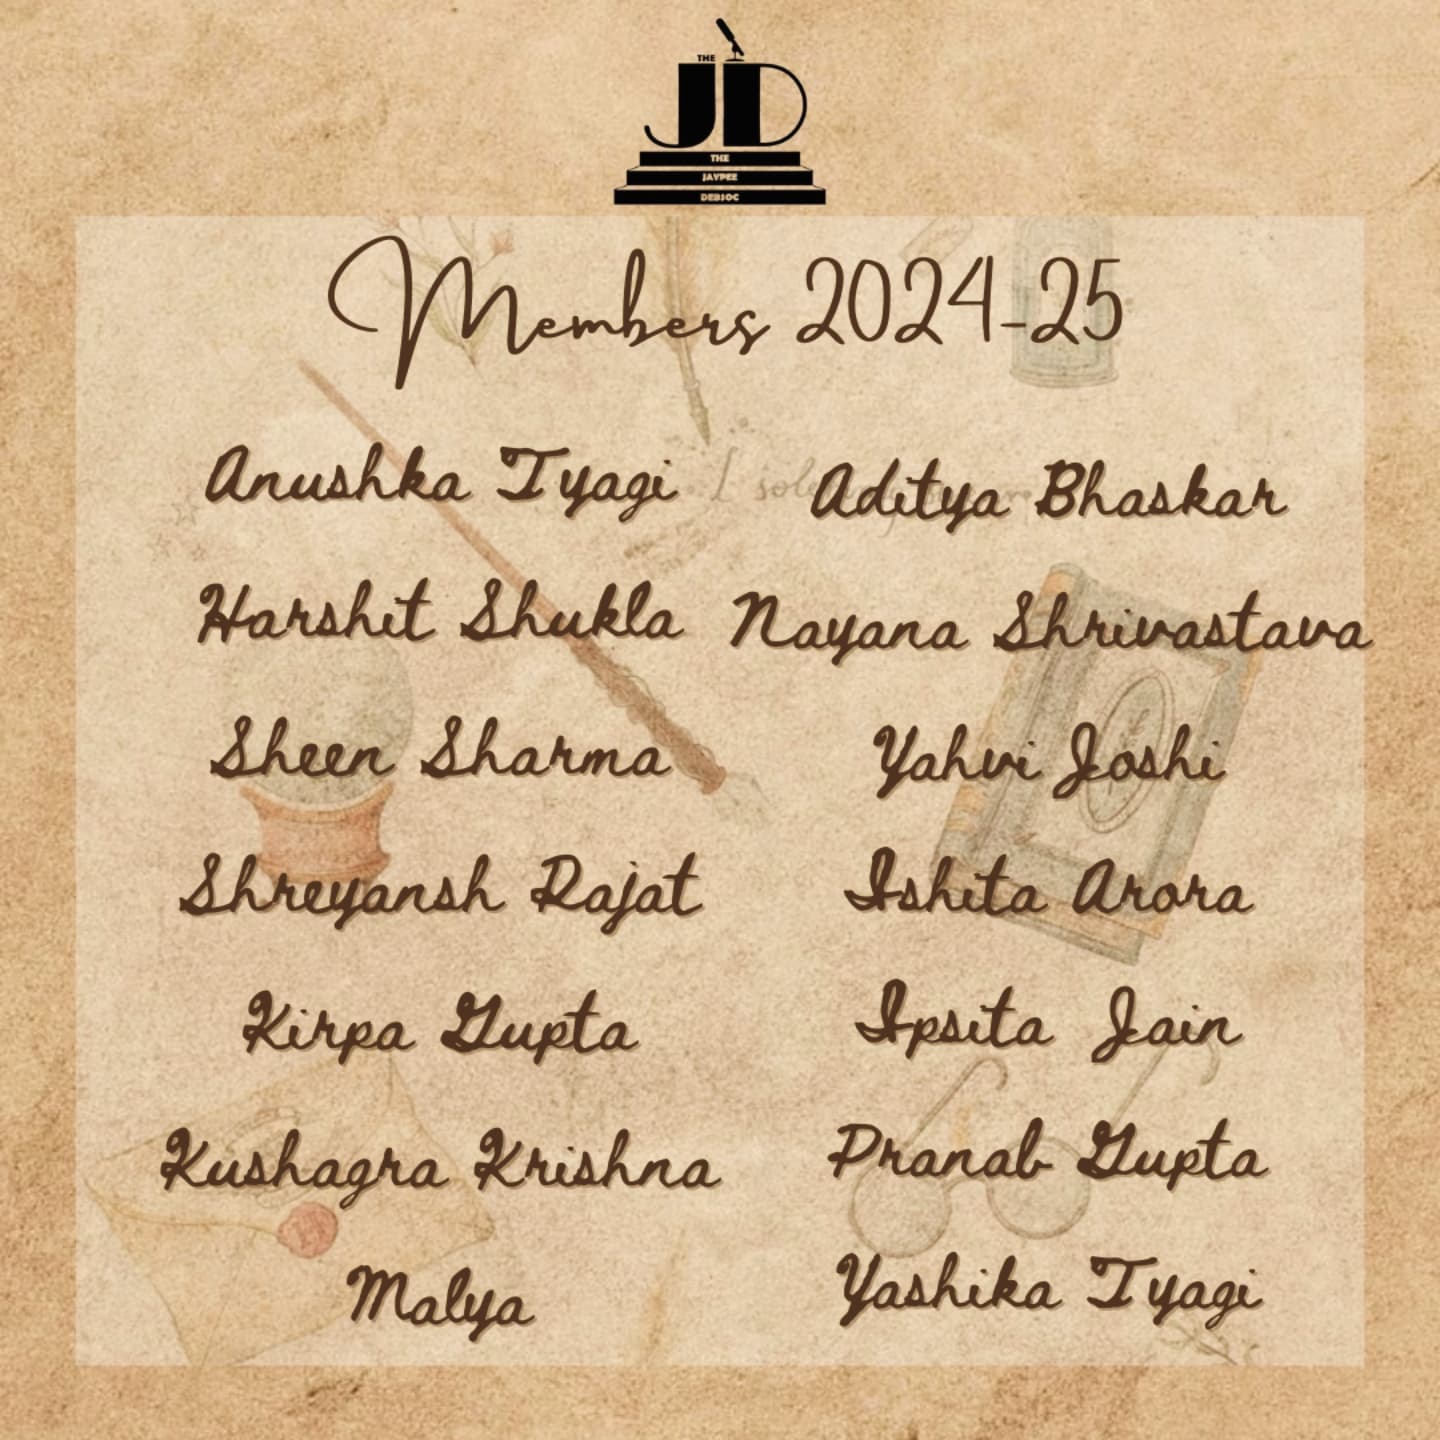 THE
JD
THE
JAYPEE
DEBSOC
Members 2024-25
Anushka Tyagi
Aditya Bhaskar
Harshit Shukla
Nayana Shrivastava
Sheen Sharma
Yahvi Joshi
Shreyansh Rajat
Ishita Arora
Kirpa Gupta
Ipsita Jain
Kushagra Krishna
Pranab Gupta
Malya
Yashika Tyagi